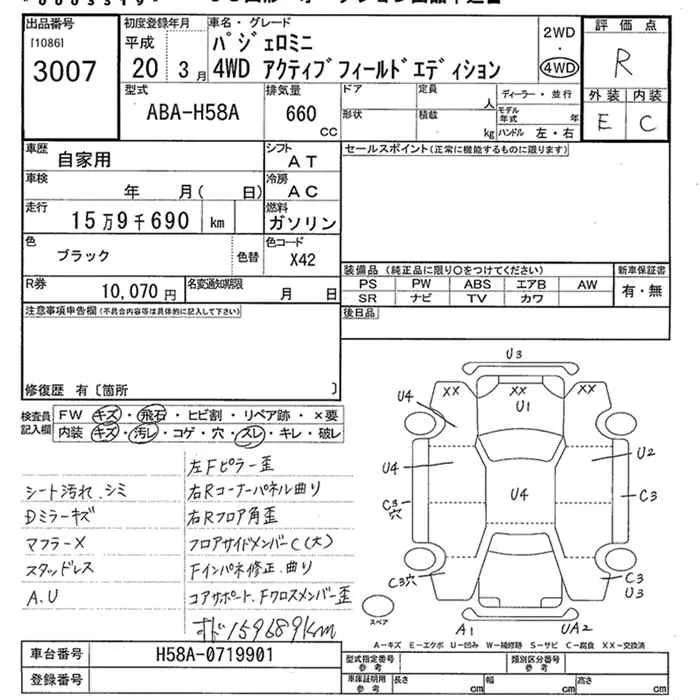 出品番号
[1086]
3007
初度登録年月
平成
20 3月
車名・グレード
パジェロミニ
4WD アクティブフィールドエディション
2WD
・
4WD
評価点
R
外装 内装
E C
型式
ABA-H58A
排気量
660
cc
ドア
形状
定員
人
積載
kg
ディーラー・並行
モデル年式 年
ハンドル 左・右
車歴
自家用
シフト
AT
車検
年 月( 日)
冷房
AC
走行
15万9千690 km
燃料
ガソリン
色
ブラック
色替
色コード
X42
R券
10,070円
名変通知期限
月 日
セールスポイント(正常に機能するものに限ります)
装備品 (純正品に限り○をつけてください)
PS PW ABS エアB AW
SR ナビ TV カワ
新車保証書
有・無
後日品
注意事項申告欄(不具合内容等は具体的に記入して下さい)
修復歴 有〔箇所 〕
検査員記入欄
FW キズ・飛石・ヒビ割・リペア跡・×要
内装 キズ・汚レ・コゲ・穴・スレ・キレ・破レ
シート汚れ、シミ
Dミラーキズ
マフラーX
スタッドレス
A.U
左Fピラー歪
右Rコーナーパネル曲り
右Rフロア角歪
フロアサイドメンバーC(大)
Fインパネ修正、曲り
コアサポート、Fクロスメンバー歪
オド159689km
U3
XX XX XX
U4 U1
U4 U4 U2
C3穴 C3
C3穴 C3 U3
A1 UA2
スペア
A-キズ E-エクボ U-凹み W-補修跡 S-サビ C-腐食 XX-交換済
車台番号
H58A-0719901
登録番号
型式指定番号参考
類別区分番号参考
車庫証明用参考
長さ cm 幅 cm 高さ cm